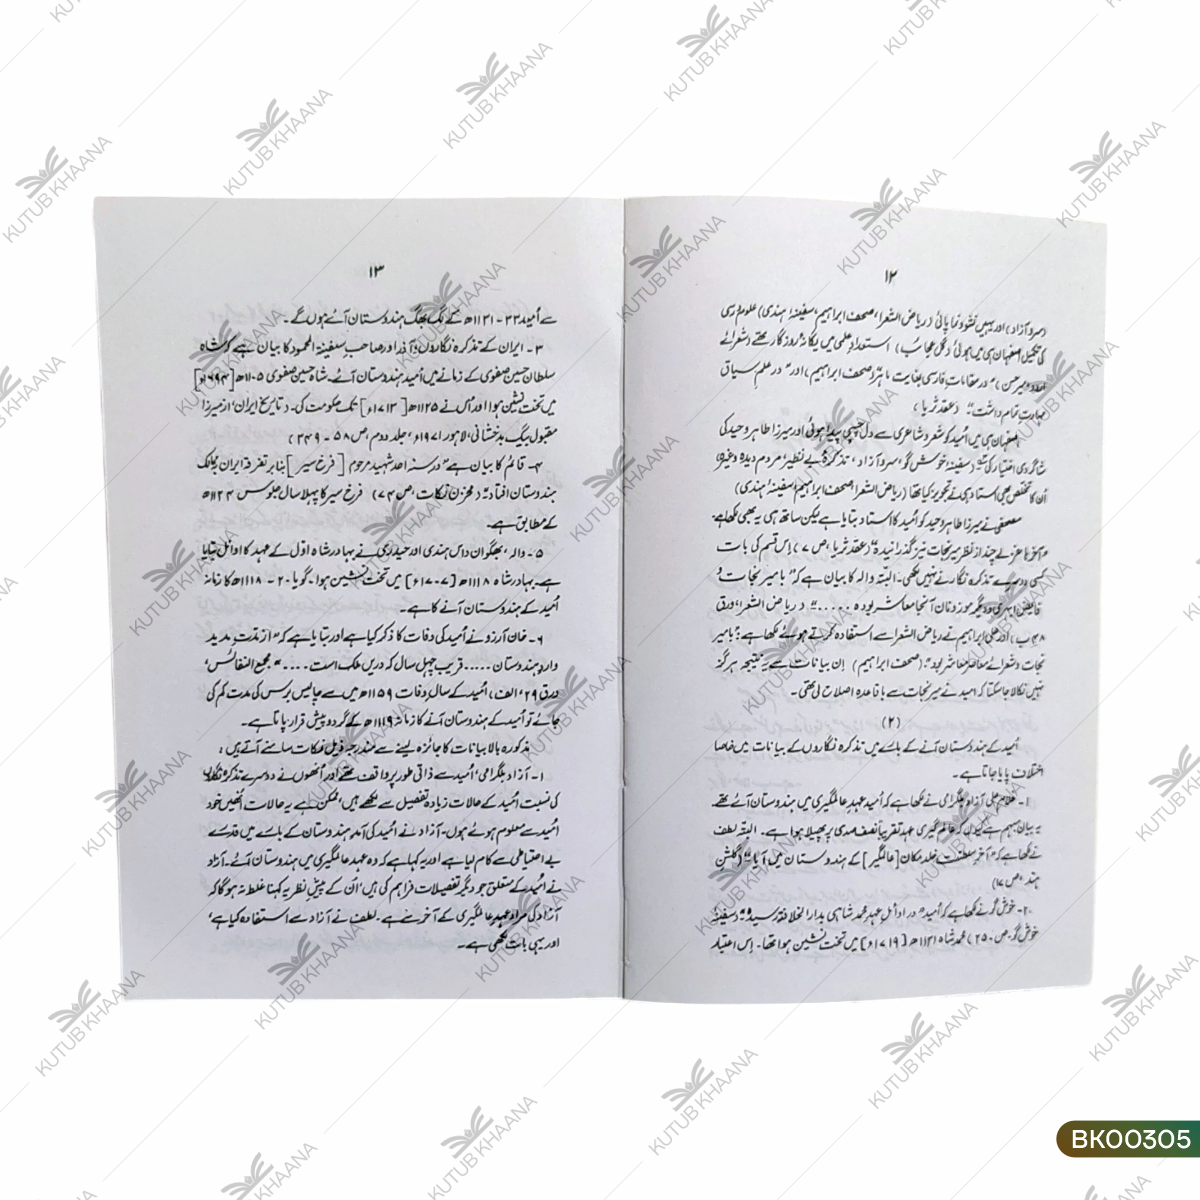 ۱۲
(سرو آزاد) اور یہیں نشوونما پائی (ریاض الشعرا، صحف ابراہیم، سفینۂ ہندی) علوم رسمی
کی تکمیل اصفہان ہی میں ہوئی (گل عجائب) استعدادِ علمی میں یگانۂ روزگار تھے (شعرائے
اردو، میر حسن)، "در مقامات فارسی بغایت ماہر" (صحف ابراہیم)، اور "در علم سیاق
مہارتِ تمام داشت" (عقد ثریا)
اصفہان ہی میں اُمید کو شعر و شاعری سے دل چسپی پیدا ہوئی اور میرزا طاہر وحید کی
شاگردی اختیار کی" (سفینۂ خوش گو، سرو آزاد، تذکرۂ بے نظیر، مردم دیدہ وغیرہ)
اُن کا تخلص بھی استاد ہی نے تجویز کیا تھا (ریاض الشعرا، صحف ابراہیم، سفینۂ ہندی)
مصحفی نے میرزا طاہر وحید کو اُمید کا استاد بتایا ہے لیکن ساتھ ہی یہ بھی لکھا ہے:
"آخرہا غزلے چند از نظر میر نجات نیز گذرانیدہ" (عقد ثریا، ص ۷) اِس قسم کی بات
کسی دوسرے تذکرہ نگار نے نہیں لکھی۔ البتّہ والہ کا بیان ہے کہ "با میر نجات و
فایض ابہری و دیگر موزونان آنجا معاشر بودہ ....." (ریاض الشعرا، ورق
۴۸ب) اور علی ابراہیم نے ریاض الشعرا سے استفادہ کرتے ہوئے لکھا ہے: "با میر
نجات و شعرائے معاصر معاشر بود" (صحف ابراہیم) اِن بیانات سے یہ نتیجہ ہرگز
نہیں نکالا جا سکتا کہ امید نے میر نجات سے باقاعدہ اصلاح لی تھی۔
(۲)
اُمید کے ہندوستان آنے کے بارے میں تذکرہ نگاروں کے بیانات میں خاصا
اختلاف پایا جاتا ہے۔
۱۔ غلام علی آزاد بلگرامی نے لکھا ہے کہ اُمید عہدِ عالمگیری میں ہندوستان آئے تھے
یہ بیان مبہم ہے کیوں کہ عالم گیری عہد تقریباً نصف صدی پر پھیلا ہوا ہے۔ البتہ لطف
نے لکھا ہے کہ "آخر سلطنت خلد مکان [عالمگیر] کے ہندوستان میں آیا" (گلشنِ
ہند، ص ۱۷)
۲۔ خوش گو نے لکھا ہے کہ اُمید "در اوائل عہد محمد شاہی بدار الخلافۃ رسید" (سفینۂ
خوش گو، ص ۲۵۰) محمد شاہ ۱۱۳۱ھ [۱۷۱۹ء] میں تخت نشین ہوا تھا۔ اِس اعتبار
۱۳
سے اُمید ۳۲-۱۱۳۱ھ کے لگ بھگ ہندوستان آئے ہوں گے۔
۳۔ ایران کے تذکرہ نگاروں: آذر اور صاحبِ سفینۃ المحمود کا بیان ہے کہ شاہ
سلطان حسین صفوی کے زمانے میں اُمید ہندوستان آئے۔ شاہ حسین صفوی ۱۱۰۵ھ [۱۶۹۴ء]
میں تخت نشین ہوا اور اُس نے ۱۱۲۵ھ [۱۷۱۳ء] تک حکومت کی۔ (تاریخ ایران، از میرزا
مقبول بیگ بدخشانی، لاہور ۱۹۷۱ء، جلد دوم، ص ۵۸-۳۴۹)
۴۔ قائم کا بیان ہے "در سنہ احد شہید مرحوم [فرخ سیر] بنا بر تفرقۂ ایران بملک
ہندوستان افتاد" (مخزن نکات، ص ۷۴) فرخ سیر کا پہلا سال جلوس ۱۱۲۴ھ
کے مطابق ہے۔
۵۔ والہ، بھگوان داس ہندی اور حیدری نے بہادر شاہ اوّل کے عہد کا اوائل بتایا
ہے۔ بہادر شاہ ۱۱۱۸ھ [۱۷۰۷ء] میں تخت نشین ہوا۔ گویا ۲۰-۱۱۱۸ھ کا زمانہ
اُمید کے ہندوستان آنے کا ہے۔
۶۔ خان آرزو نے اُمید کی وفات کا ذکر کیا ہے اور بتایا ہے کہ "از مدت مدید
وارد ہندوستان ..... قریب چہل سال کہ دریں ملک است ....." (مجمع النفائس،
ورق ۲۹، الف) اُمید کے سالِ وفات ۱۱۵۹ھ میں سے چالیس برس کی مدت کم کی
جائے تو اُمید کے ہندوستان آنے کا زمانہ ۱۱۱۹ھ کے گرد و پیش قرار پاتا ہے۔
مذکورہ بالا بیانات کا جائزہ لینے سے مندرجہ ذیل نکات سامنے آتے ہیں:
۱۔ آزاد بلگرامی، اُمید سے ذاتی طور پر واقف تھے اور اُنھوں نے دوسرے تذکرہ نگاروں
کی نسبت اُمید کے حالات زیادہ تفصیل سے لکھے ہیں، ممکن ہے یہ حالات اُنھیں خود
اُمید سے معلوم ہوئے ہوں۔ آزاد نے اُمید کی آمدِ ہندوستان کے بارے میں قدرے
بے احتیاطی سے کام لیا ہے اور یہ کہا ہے کہ وہ عہدِ عالمگیری میں ہندوستان آئے۔ آزاد
نے اُمید کے متعلق جو دیگر تفصیلات فراہم کی ہیں، اُن کے پیشِ نظر یہ کہنا غلط نہ ہو گا کہ
آزاد کی مراد عہدِ عالمگیری کے آخر سنے ہے۔ لطف نے آزاد سے استفادہ کیا ہے،
اور یہی بات لکھی ہے۔
KUTUB KHAANA
BK00305